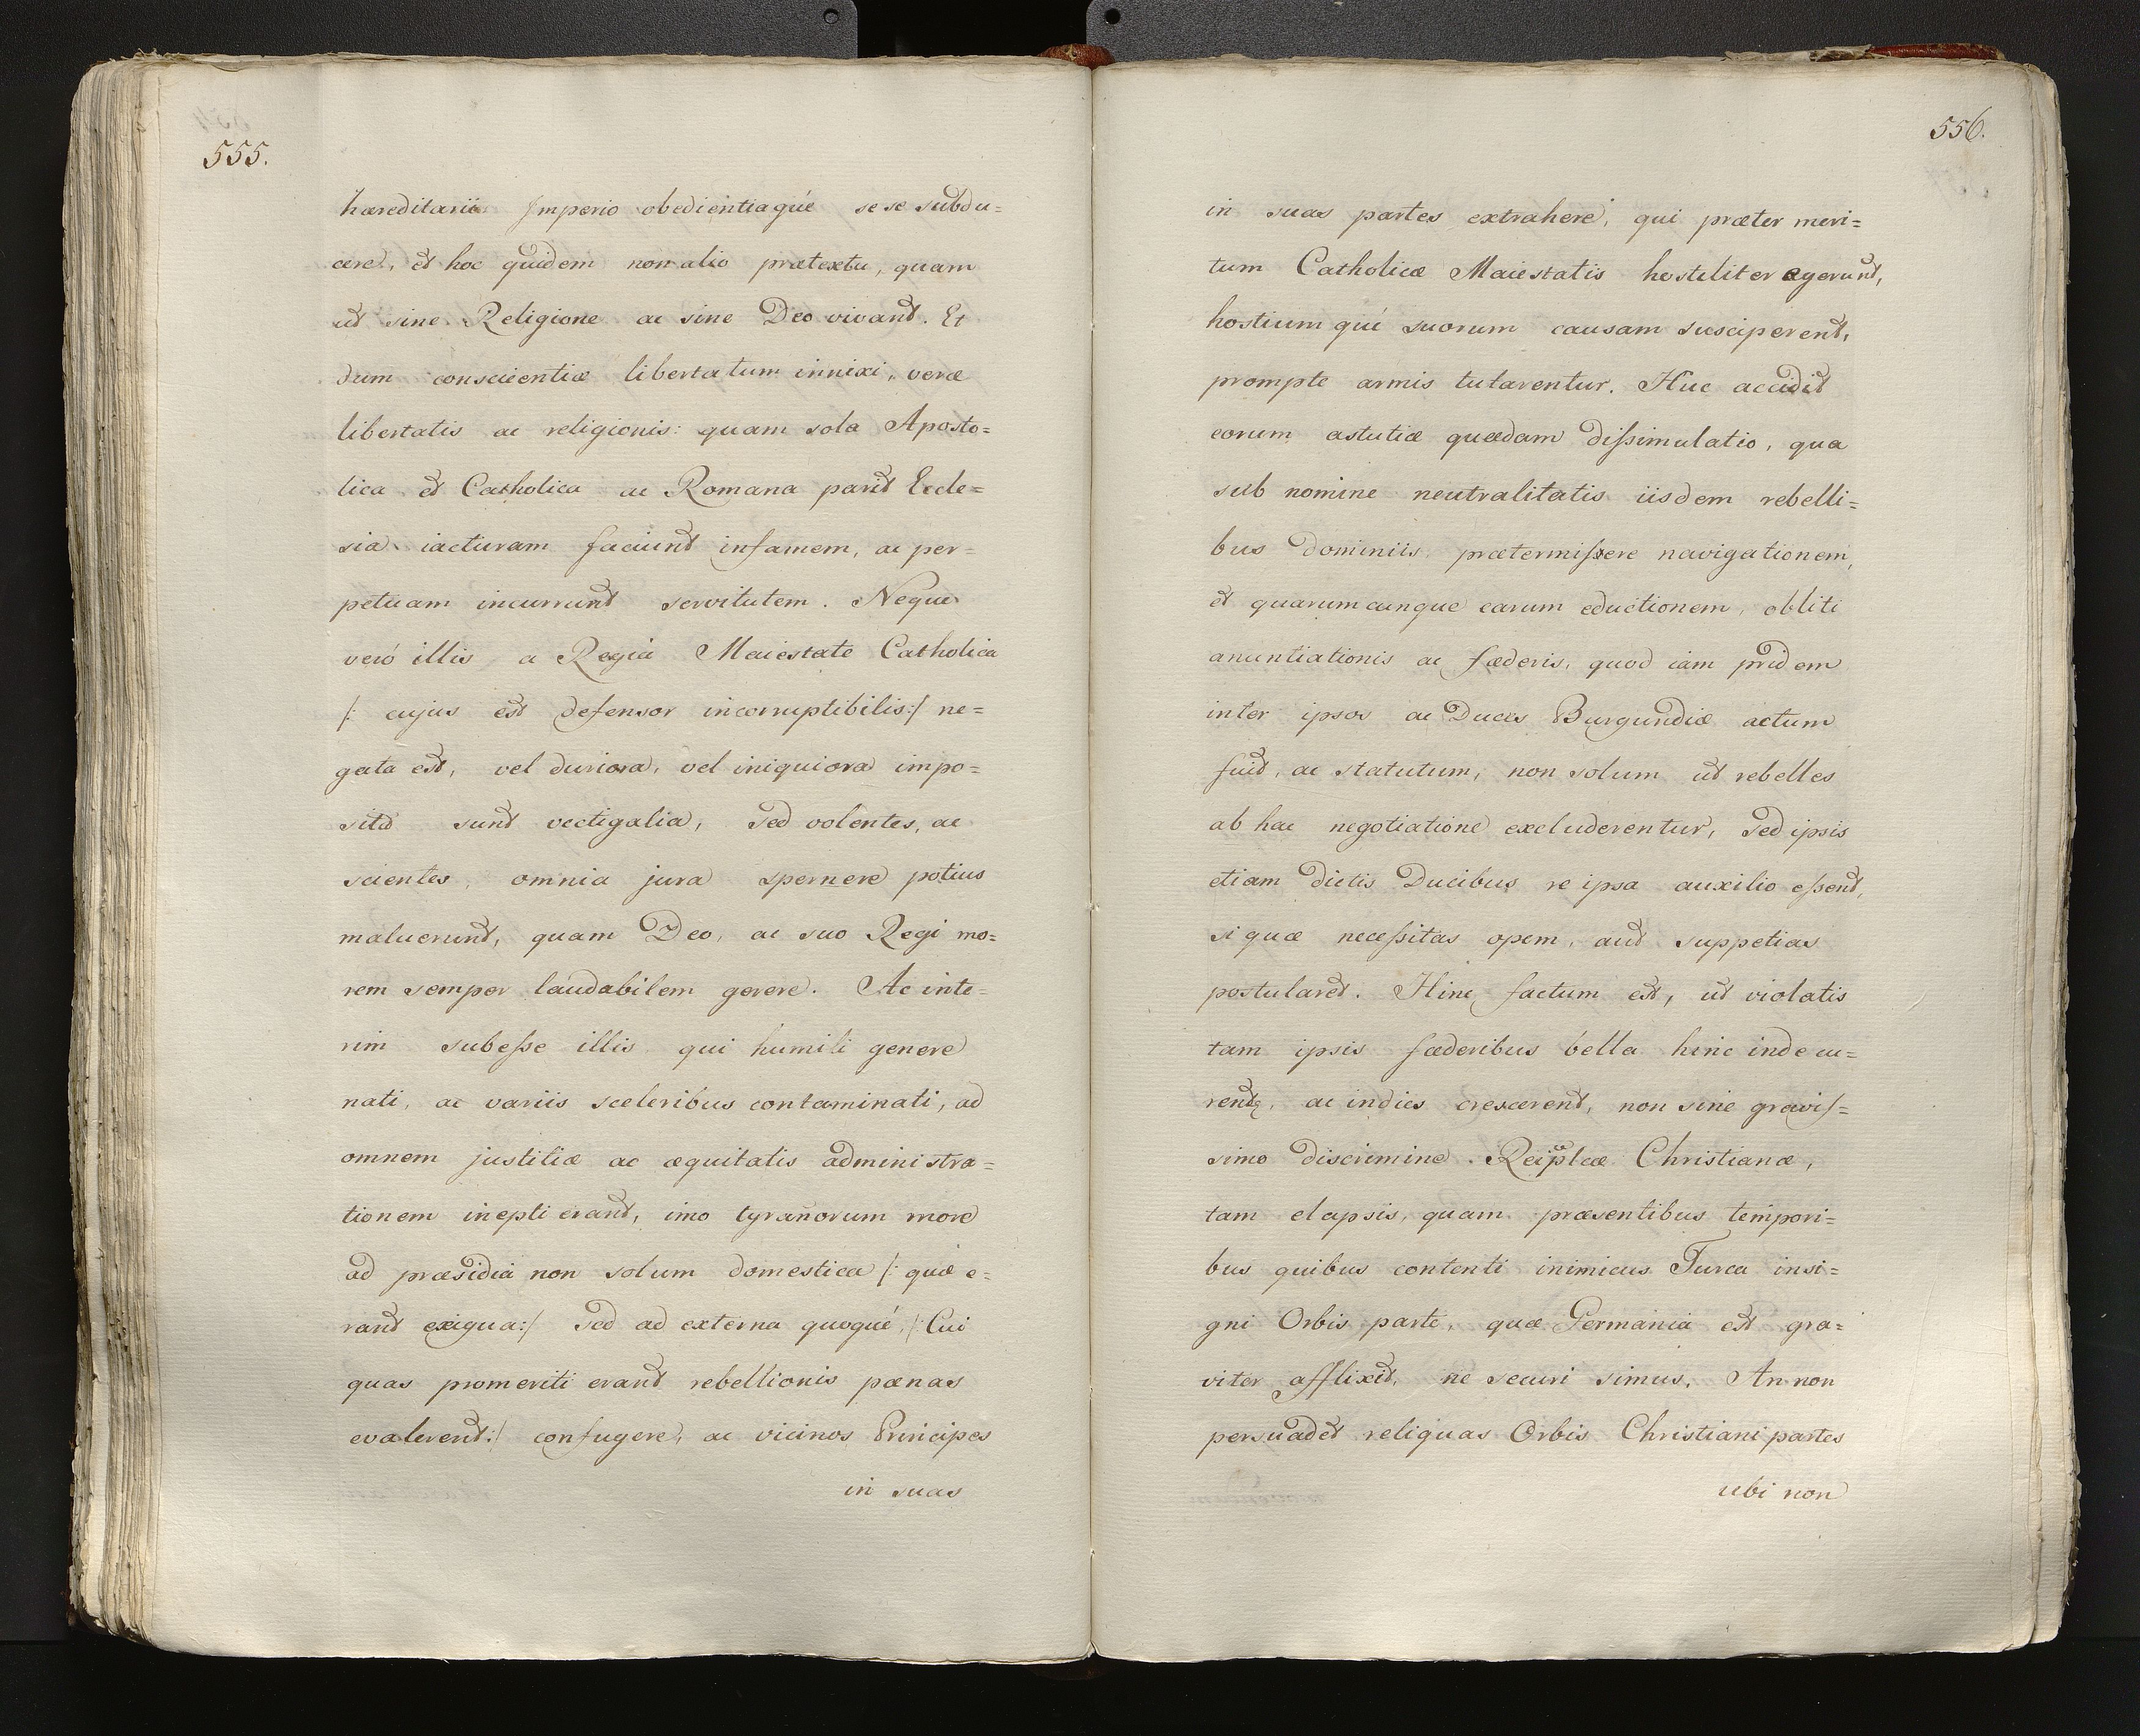 555.
hæreditarii Imperio obedientiaqué sese subdu=
cere, et hoc quidem non alio prætextu, quam
ut sine Religione ac sine Deo vivant. Et
dum conscientiæ libertatum innixi, veræ
libertatis ac religionis: quam sola Aposto=
lica et Catholica ac Romana parit Eccle=
sia iacturam faciunt infamem, ac per=
petuam incurrunt servitutem. Neque
veró illis a Regia Maiestate Catholica
/: cujus est defensor incorruptibilis:/ ne=
gata est, vel duriora, vel iniquiora impo=
sita sunt vectigalia, sed volentes, ac
scientes, omnia jura spernere potius
maluerunt, quam Deo, ac suo Regi mo=
rem semper laudabilem gerere. Ac inte=
rim subeſse illis qui humili genere
nati, ac variis sceleribus contaminati, ad
omnem justitiæ ac æquitatis administra=
tionem inepti erant, imo tyrañorum more
ad præsidia non solum domestica /: quæ e=
rant exigua:/ sed ad externa quoqué, /: Cui
quas promeriti erant rebellionis pœnas
evalerent:/ confugere, ac vicinos Principes
in suas
556.
in suas partes extrahere, qui præter meri=
tum Catholicæ Maiestatis hostiliter agerunt,
hostium qué suorum causam susciperent,
prompte armis tutarentur. Huc accidit
eorum astutiæ quædam diſsimulatio, qua
sub nomine neutralitatis iisdem rebelli=
bus dominiis prætermiſere navigationem,
et quarumcunque earum eductionem, obliti
anuntiationis ac fœderis, quod iam pridem
inter ipsos ac Duces Burgundiæ actum
fuit, ac statutum, non solum ut rebelles
ab hac negotiatione excluderentur, sed ipsis
etiam dictis Ducibus re ipsa auxilio eſsent,
si quæ neceſsitas opem, aut suppetias
postularet. Hinc factum est, ut violatis
tam ipsis fœderibus bella hinc inde cu=
rentę, ac indies crescerent, non sine graviſ=
simo discrimine Reiplcæ Christianæ,
tam elapsis, quam præsentibus tempori=
bus quibus contenti inimicus Turca insi=
gni Orbis parte, quæ Germania est gra=
viter afflixit, ne securi simus. An non
persuadet reliquas Orbis Christiani partes
ubi non